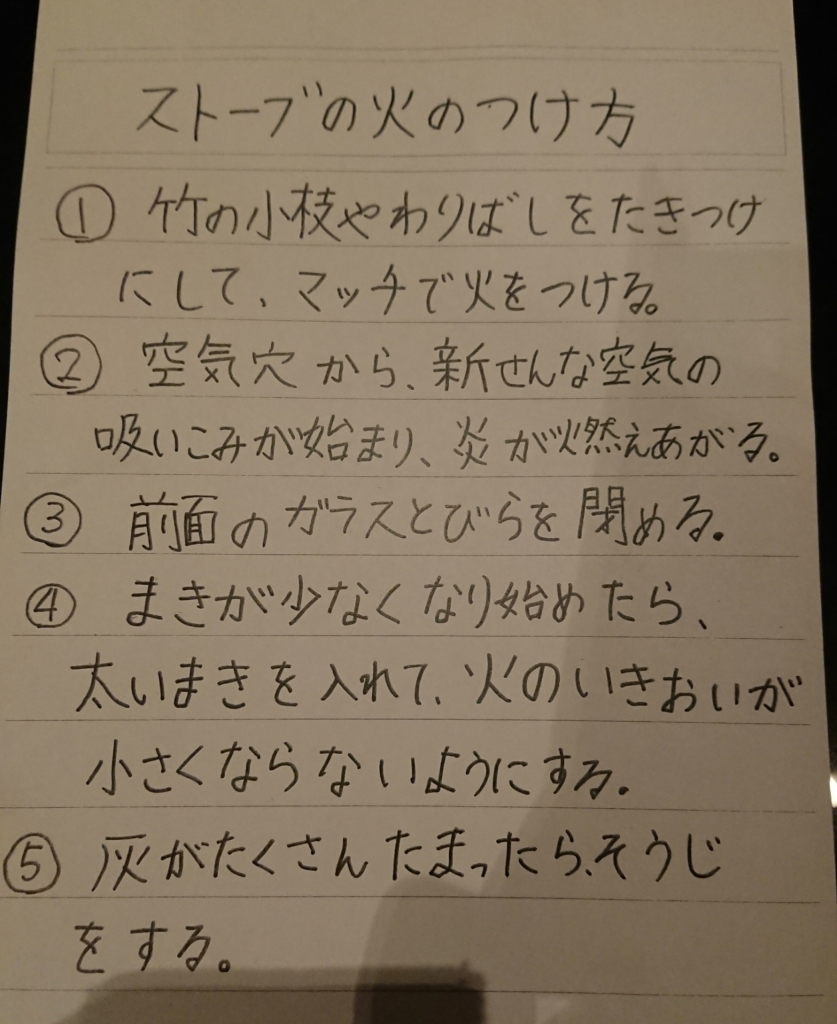 ストーブの火のつけ方
① 竹の小枝やわりばしをたきつけ
にして、マッチで火をつける。
② 空気穴から、新せんな空気の
吸いこみが始まり、炎が燃えあがる。
③ 前面のガラスとびらを閉める。
④ まきが少なくなり始めたら、
太いまきを入れて、火のいきおいが
小さくならないようにする。
⑤ 灰がたくさんたまったら、そうじ
をする。